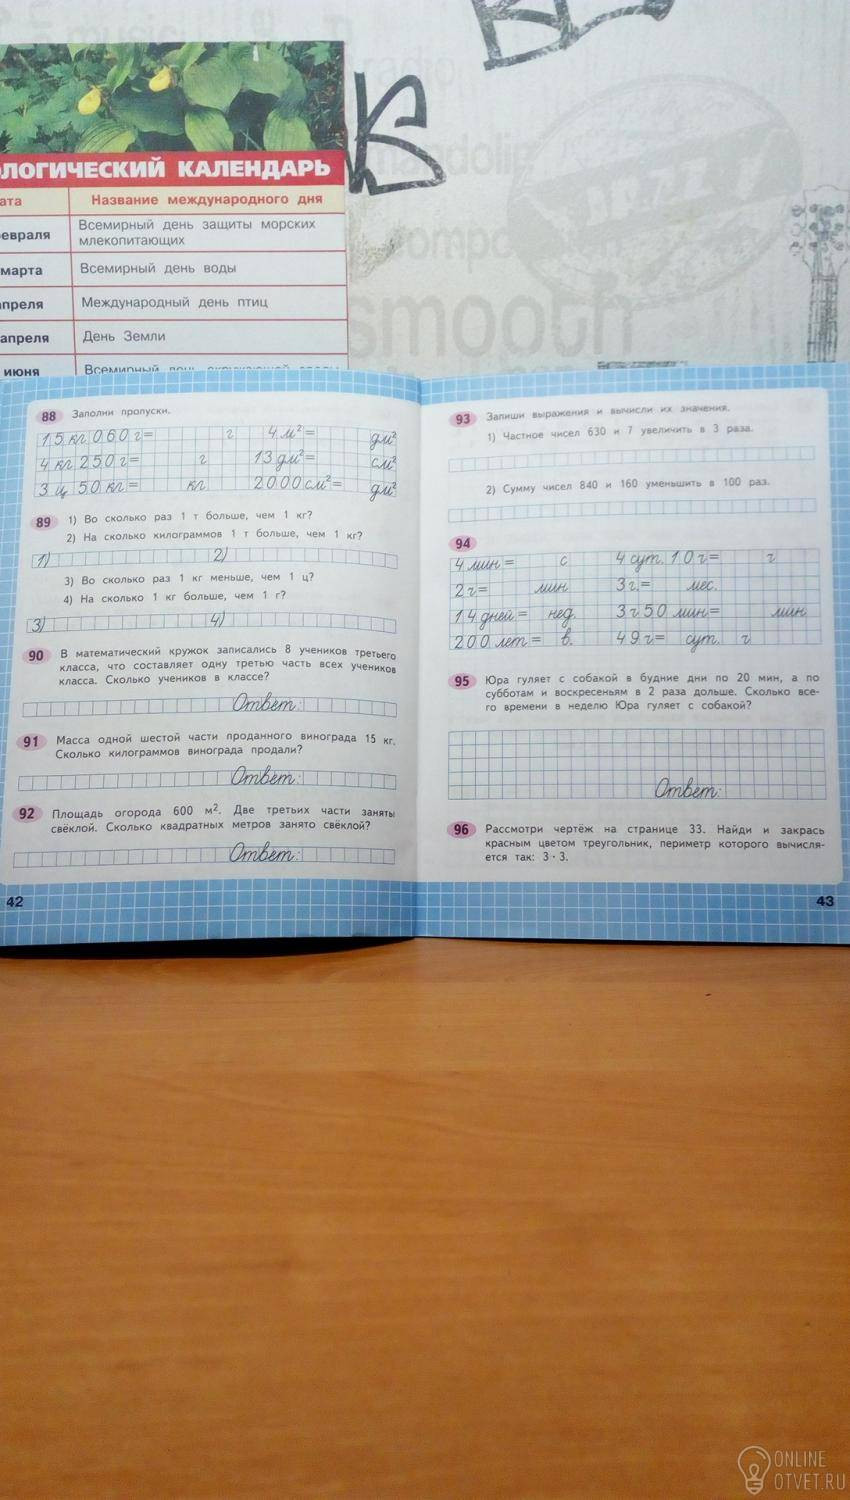 music
radio
mandolin
JAZZ
smooth
ОЛОГИЧЕСКИЙ КАЛЕНДАРЬ
ата Название международного дня
евраля Всемирный день защиты морских
млекопитающих
марта Всемирный день воды
апреля Международный день птиц
апреля День Земли
июня Всемирный день
88 Заполни пропуски.
15 кг 060 г = г 4 м² = дм²
4 кг 250 г = г 13 дм² = см²
3 ц 50 кг = кг 2000 см² = дм²
89 1) Во сколько раз 1 т больше, чем 1 кг?
2) На сколько килограммов 1 т больше, чем 1 кг?
1) 2)
3) Во сколько раз 1 кг меньше, чем 1 ц?
4) На сколько 1 кг больше, чем 1 г?
3) 4)
90 В математический кружок записались 8 учеников третьего
класса, что составляет одну третью часть всех учеников
класса. Сколько учеников в классе?
Ответ:
91 Масса одной шестой части проданного винограда 15 кг.
Сколько килограммов винограда продали?
Ответ:
92 Площадь огорода 600 м². Две третьих части заняты
свёклой. Сколько квадратных метров занято свёклой?
Ответ:
42
93 Запиши выражения и вычисли их значения.
1) Частное чисел 630 и 7 увеличить в 3 раза.
2) Сумму чисел 840 и 160 уменьшить в 100 раз.
94
4 мин = с 4 сут. 10 ч = ч
2 ч = мин 3 г. = мес.
14 дней = нед. 3 ч 50 мин = мин
200 лет = в. 49 ч = сут. ч
95 Юра гуляет с собакой в будние дни по 20 мин, а по
субботам и воскресеньям в 2 раза дольше. Сколько все-
го времени в неделю Юра гуляет с собакой?
Ответ:
96 Рассмотри чертёж на странице 33. Найди и закрась
красным цветом треугольник, периметр которого вычисля-
ется так: 3 · 3.
43
ONLINE
OTVET.RU